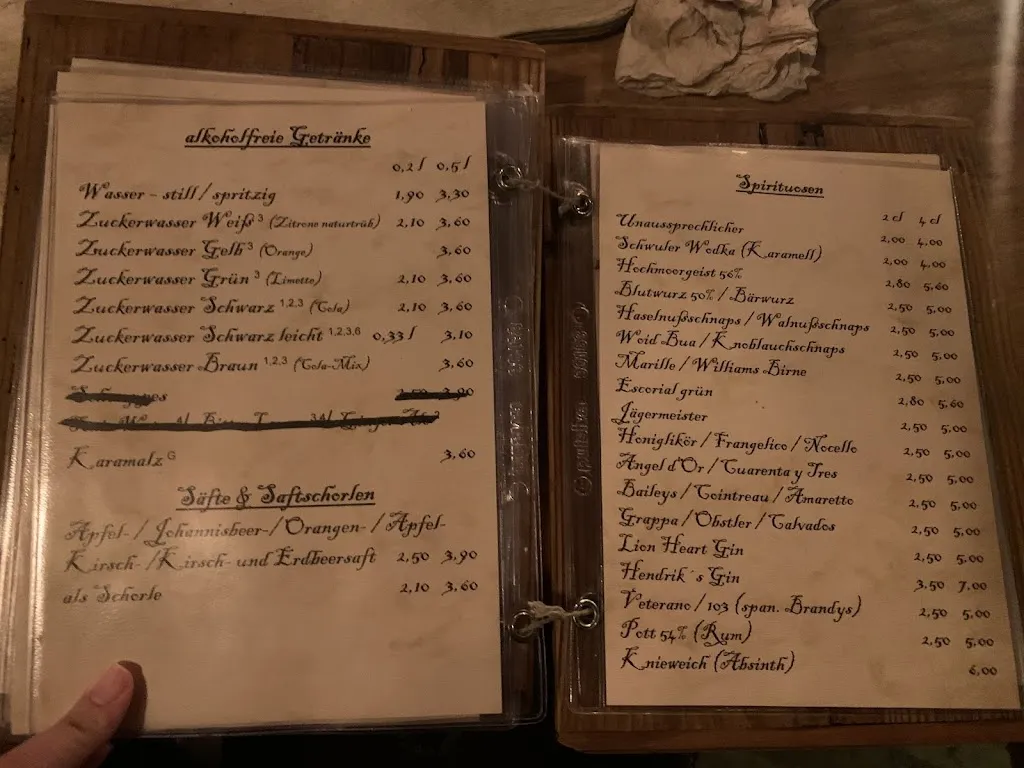 alkoholfreie Getränke
0,2 l 0,5 l
Wasser – still / spritzig 1,90 3,30
Zuckerwasser Weiß ³ (Zitrone naturtrüb) 2,10 3,60
Zuckerwasser Gelb ³ (Orange) 3,60
Zuckerwasser Grün ³ (Limette) 2,10 3,60
Zuckerwasser Schwarz 1,2,3 (Cola) 2,10 3,60
Zuckerwasser Schwarz leicht 1,2,3,6 0,33 l 3,10
Zuckerwasser Braun 1,2,3 (Cola-Mix) 3,60
Karamalz G 3,60
Säfte & Saftschorlen
Apfel- / Johannisbeer- / Orangen- / Apfel-
Kirsch- / Kirsch- und Erdbeersaft 2,50 3,90
als Schorle 2,10 3,60
Spirituosen
2 cl 4 cl
Unaussprechlicher 2,00 4,00
Schwuler Wodka (Karamell) 2,00 4,00
Hochmoorgeist 56% 2,80 5,60
Blutwurz 50% / Bärwurz 2,50 5,00
Haselnußschnaps / Walnußschnaps 2,50 5,00
Woid Bua / Knoblauchschnaps 2,50 5,00
Marille / Williams Birne 2,50 5,00
Escorial grün 2,80 5,60
Jägermeister 2,50 5,00
Honiglikör / Frangelico / Nocello 2,50 5,00
Angel d'Or / Cuarenta y Tres 2,50 5,00
Baileys / Cointreau / Amaretto 2,50 5,00
Grappa / Obstler / Calvados 2,50 5,00
Lion Heart Gin 2,50 5,00
Hendrik´s Gin 3,50 7,00
Veterano / 103 (span. Brandys) 2,50 5,00
Pott 54% (Rum) 2,50 5,00
Knieweich (Absinth) 6,00